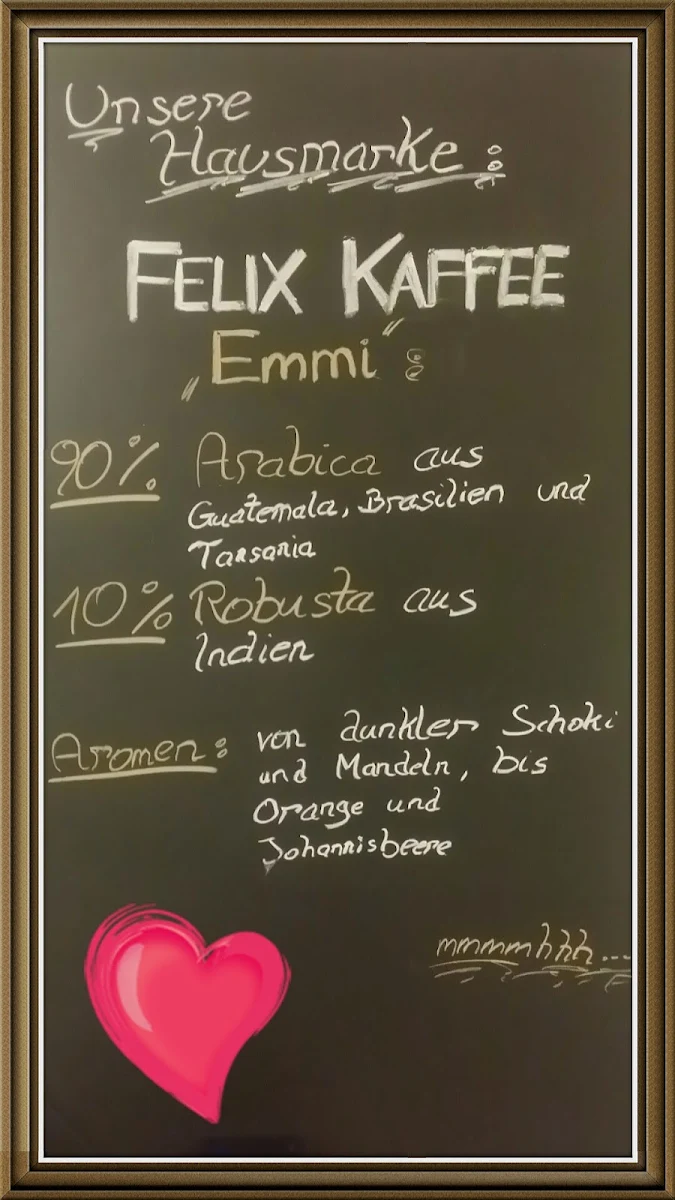 Unsere
Hausmarke:
FELIX KAFFEE
„Emmi“:
90% Arabica aus
Guatemala, Brasilien und
Tansania
10% Robusta aus
Indien
Aromen: von dunkler Schoki
und Mandeln, bis
Orange und
Johannisbeere
mmmmhhh...